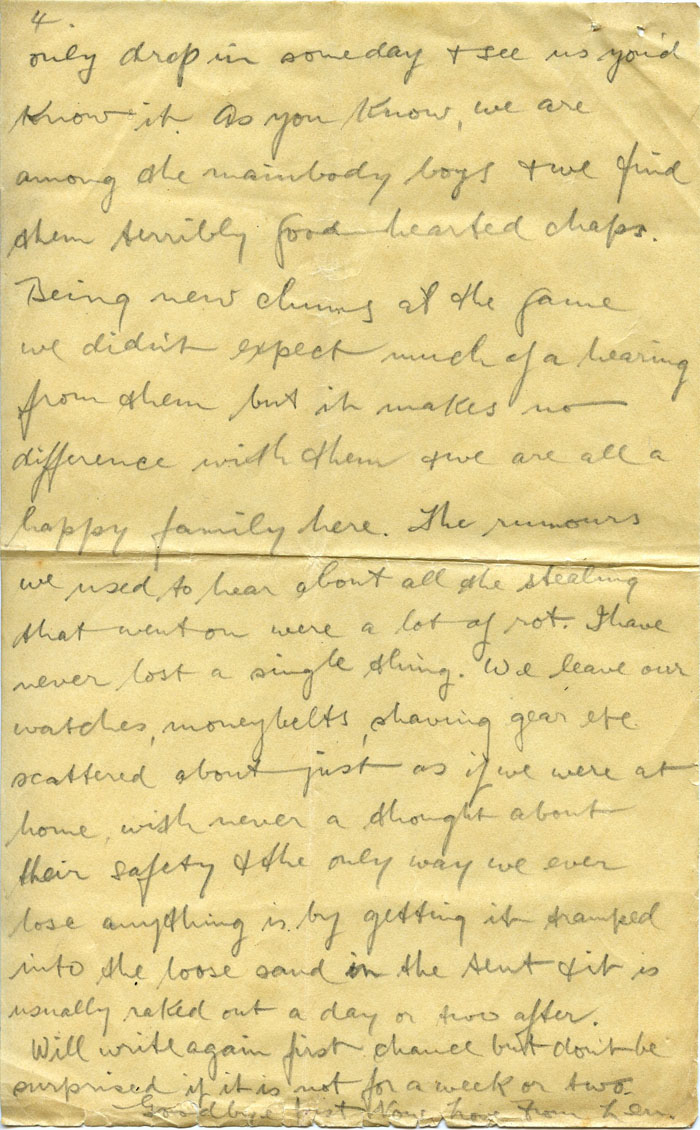 4.
only drop in someday & see us you'd
know it. As you know, we are
among the mainbody boys & we find
them terribly good-hearted chaps.
Being new chums at the game
we didn't expect much of a hearing
from them but it makes no
difference with them & we are all a
happy family here. The rumours
we used to hear about all the stealing
that went on were a lot of rot. I have
never lost a single thing. We leave our
watches, moneybelts, shaving gear etc
scattered about just as if we were at
home, with never a thought about
their safety & the only way we ever
lose anything is by getting it tramped
into the loose sand in the tent & it is
usually raked out a day or two after.
Will write again first chance but don't be
surprised if it is not for a week or two.
Goodbye Just Now, Love from Len.